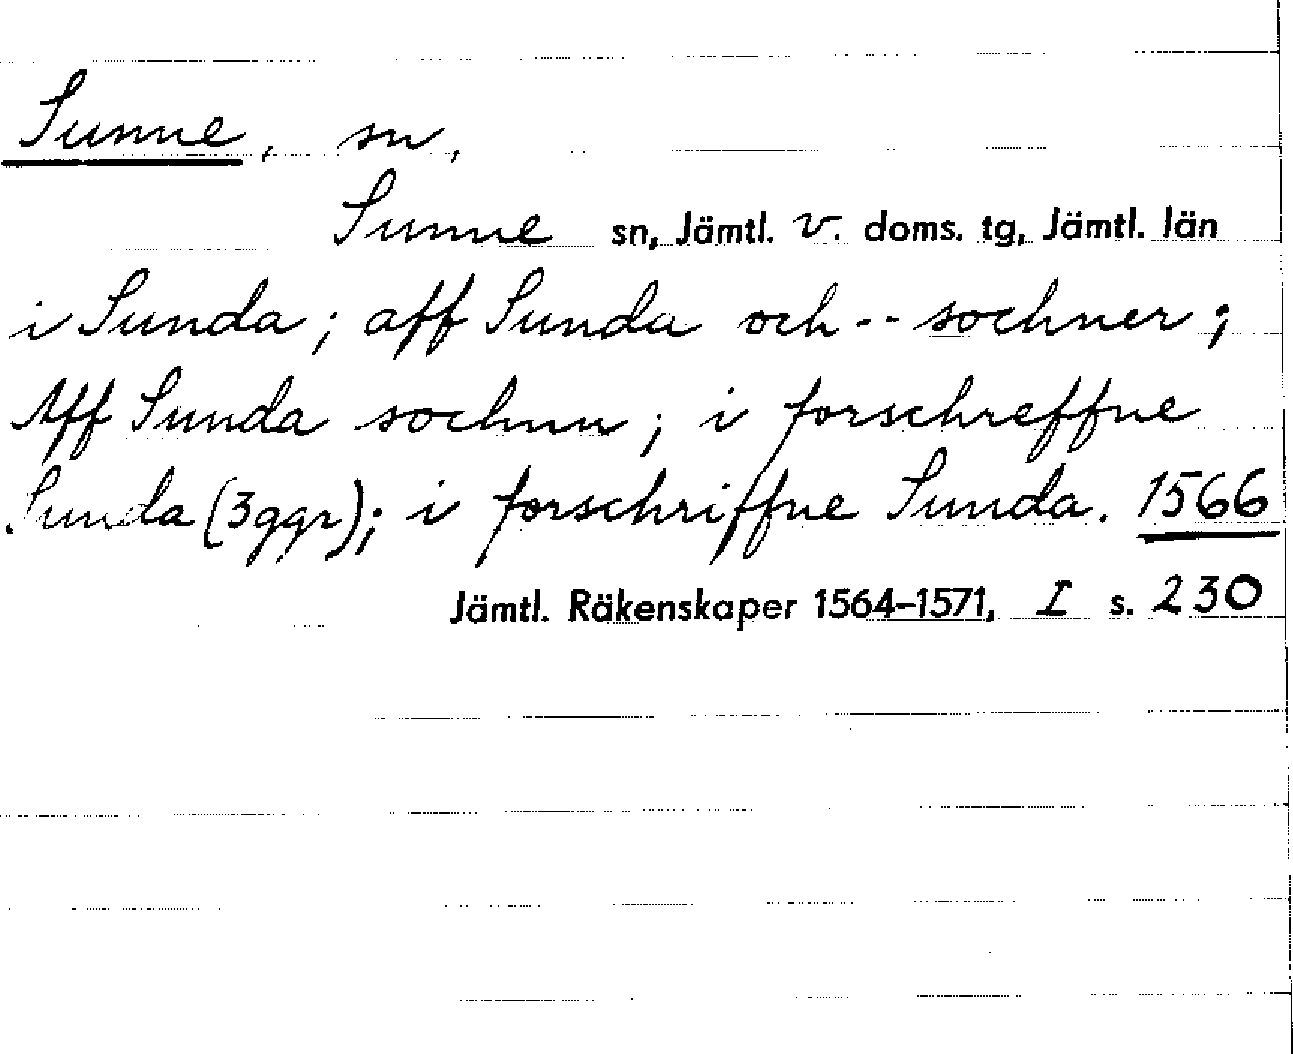 Sunne, sn,
Sunne sn, Jämtl. v. doms. tg, Jämtl. län
i Sunda; aff Sunda och -- sochner;
Aff Sunda sochnn; i forschreffne
Sunda (3ggr); i forschriffne Sunda. 1566
Jämtl. Räkenskaper 1564–1571, I s. 230